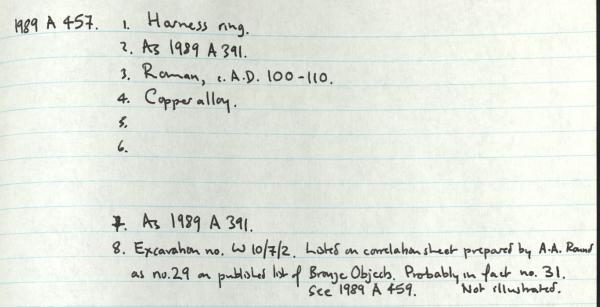 1989 A 457. 1. Harness ring.
2. As 1989 A 391.
3. Roman, c. A.D. 100-110.
4. Copper alloy.
5.
6.
7. As 1989 A 391.
8. Excavation no. W 10/7/2. Listed on correlation sheet prepared by A.A. Round
as no.29 on published list of Bronze Objects. Probably in fact no. 31.
See 1989 A 459. Not illustrated.